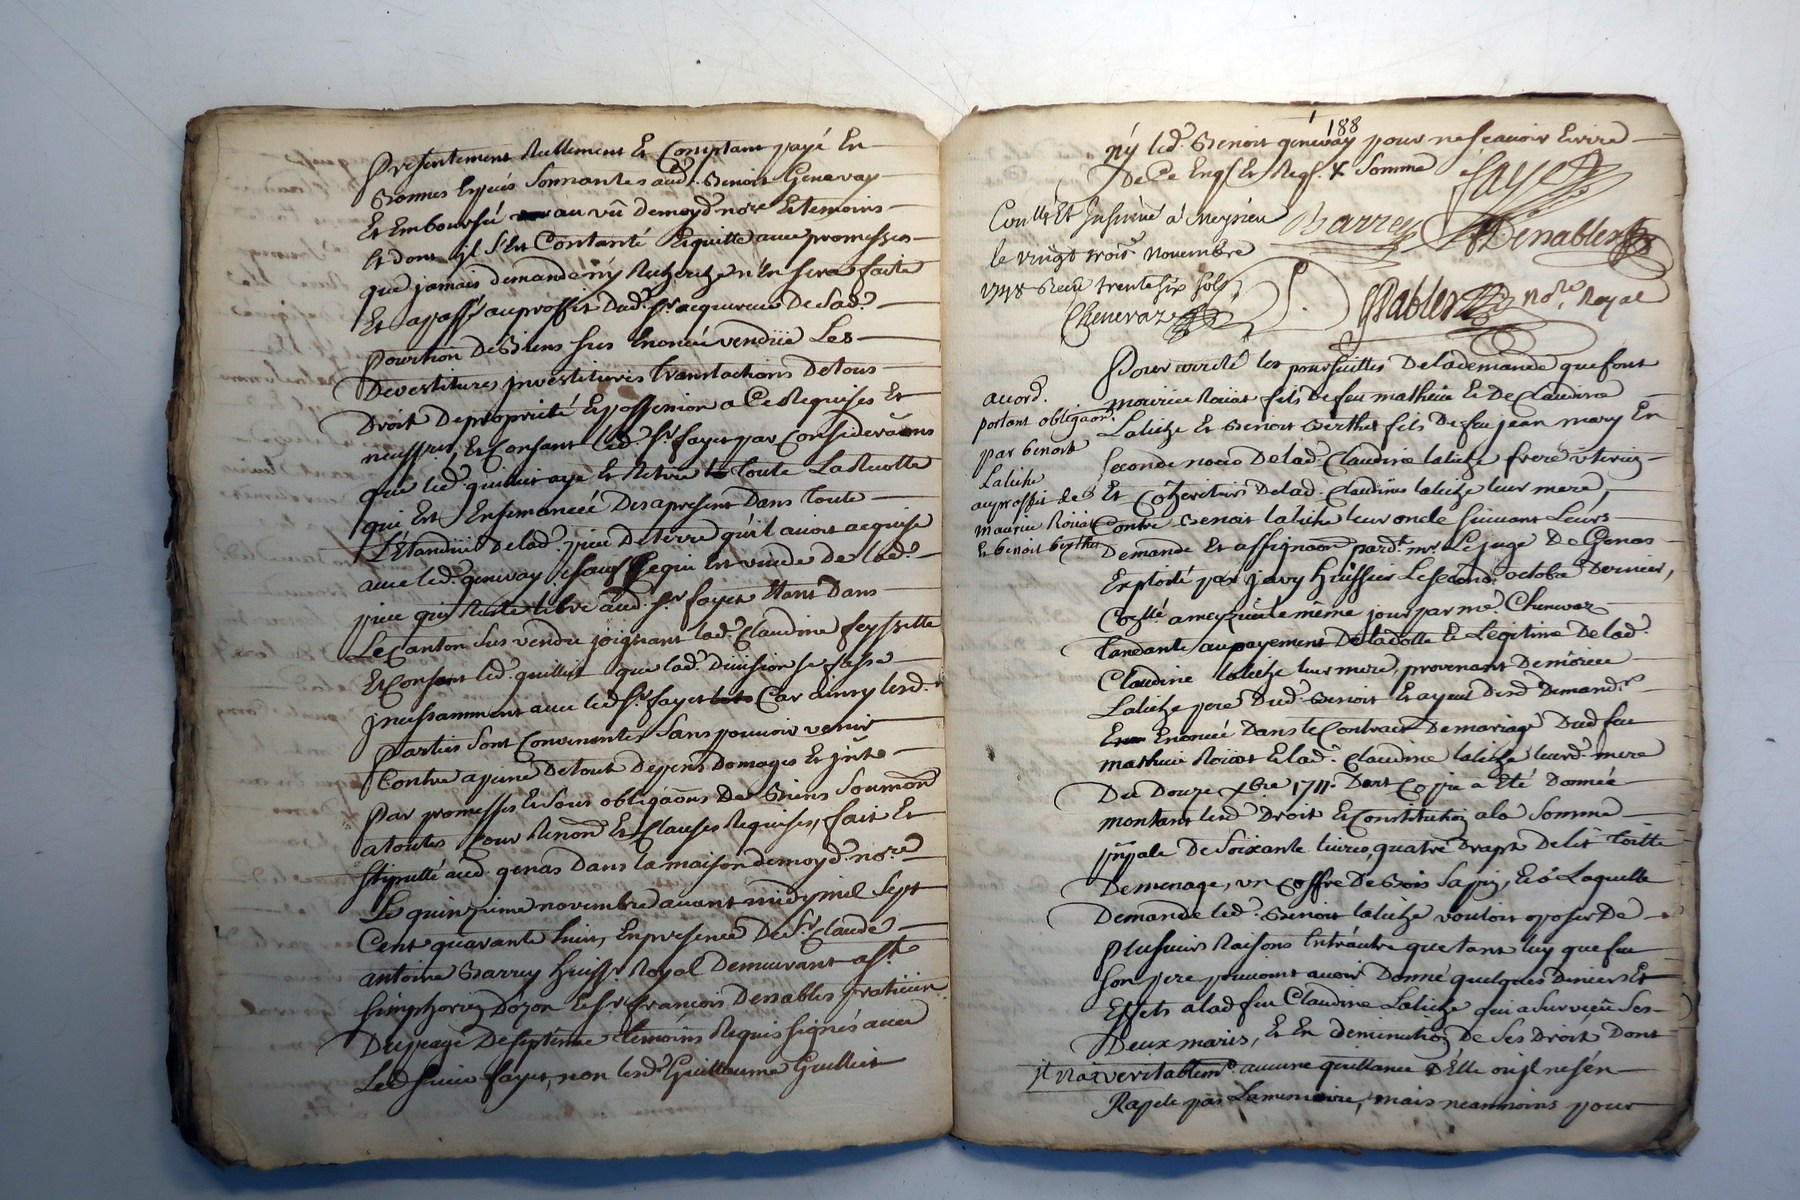 Presentement Reellement Et Comptant payé En
Bonnes Especes Sonnantes aud. Benoit Genevay
Et Emboursé au vû demoyd. nore. Et temoins
Et dont il s'Est Contanté Equitte avec promesses
que jamais demande ny Recherche n'En sera faite
Et a passé au proffit Dud. Sr. acquereur De Lad.
pourtion De Biens sus Enoncéé vendüe Les
Devestitures investitures translactions De tous
Droit De propriété Et possession a Ce Requises Et
Et Consent led. Sr. fayet par Considerãons
que led. aye Et Retire toute La
qui Est Ensemancéé Des a present Dans toute
L'Etandüe De lad. piece De terre qu'il avoit acquise
avec led. genevay, sauf Ce qui Est vuide De lad.
piece qui Reste libre aud. Sr. fayet Etant Dans
Le Canton sus vendu joignant lad. Claudine feyssitte
Et Consent led. guilliet que lad. Division se fasse
incessamment avec led. Sr. fayet Car ainsy lesd.
Parties sont Convenantes sans pouvoir venir
Contre a peine De tout Depens Domages Et jnts.
Par promesses Et sous obligaõns De Biens
a toutes Cour Renonõn Et Clauses Requises, fait Et
stipullé aud. genas Dans la maison demoyd. nore.
Le quinzieme novembre avant midy mil sept
Cent quarante huit, En presence De Sr. Claude
antoine Barrey Huissr. Royal Demeurant a St.
simphorien Dozon Et Sr. francois Denables praticien
Du peage De septeme temoins Requis signés avec
Led. Sieur fayet, non lesd. Guilleaume Guilliet
188
ny led. Benoit genevay pour ne scavoir Ecrire
De Ce Enqs. Et Reqs. & Sommé
fayet
Conllé. Et Insinüé à Meyzieu
Barrey
Denables
le vingt trois Novembre
1748 Reçu trente six sols
Chenevaz
Pables nore. Royal
Pour arreté les poursuittes De la demande que font
accord.
mourice Roüat fils De feu mathieu Et De Claudine
portant obligaõn.
Laliche Et Benoit Berthet fils De feu jean mary En
par benoit
Seconde noces De lad. Claudine laliche frere
Laliche
au proffit de
Et Cõheritiers De lad. Claudine laliche leur mere,
maurice Roüat
Contre Benoit laliche leur oncle suivant Leurs
Et benoit berthet
Demande Et assignaõn pard. mr. Le juge De Genas
Exploité par javy Huissier Le second octobre Dernier,
Conllé a meyzieu le même jour par mr. Chenevaz
tandante au payement De la dotte Et Legitime De lad.
Claudine laliche leur mere, provenant De
Laliche pere Dud. Benoit Et ayeul Desd. Demandrs.
Enoncéé Dans le Contract De mariage Dud. feu
mathieu Roüat Et lad. Claudine laliche leurd. mere
Du Douze xbre 1711. Dont Coppie a Eté Donnéé
montant lesd. Droit Et Constitution a la somme
pnpale De soixante livres, quatre Drapt De lit toille
De menage, un Coffre De Bois sapin, Et a Laquelle
Demande led. Benoit laliche vouloit oposer De
Plusieurs Raisons Entrautre que tant luy que feu
son pere pouvoint avoir Donné quelques Deniers Et
Effets a lad. feu Claudine Laliche qui a survecu ses
Deux maris, Et En deminution De ses Droit Dont
il n'a veritablemt. aucune quittance D'Elle ou jl ne s'en
Rapele pas La memoire, mais neanmoins pour